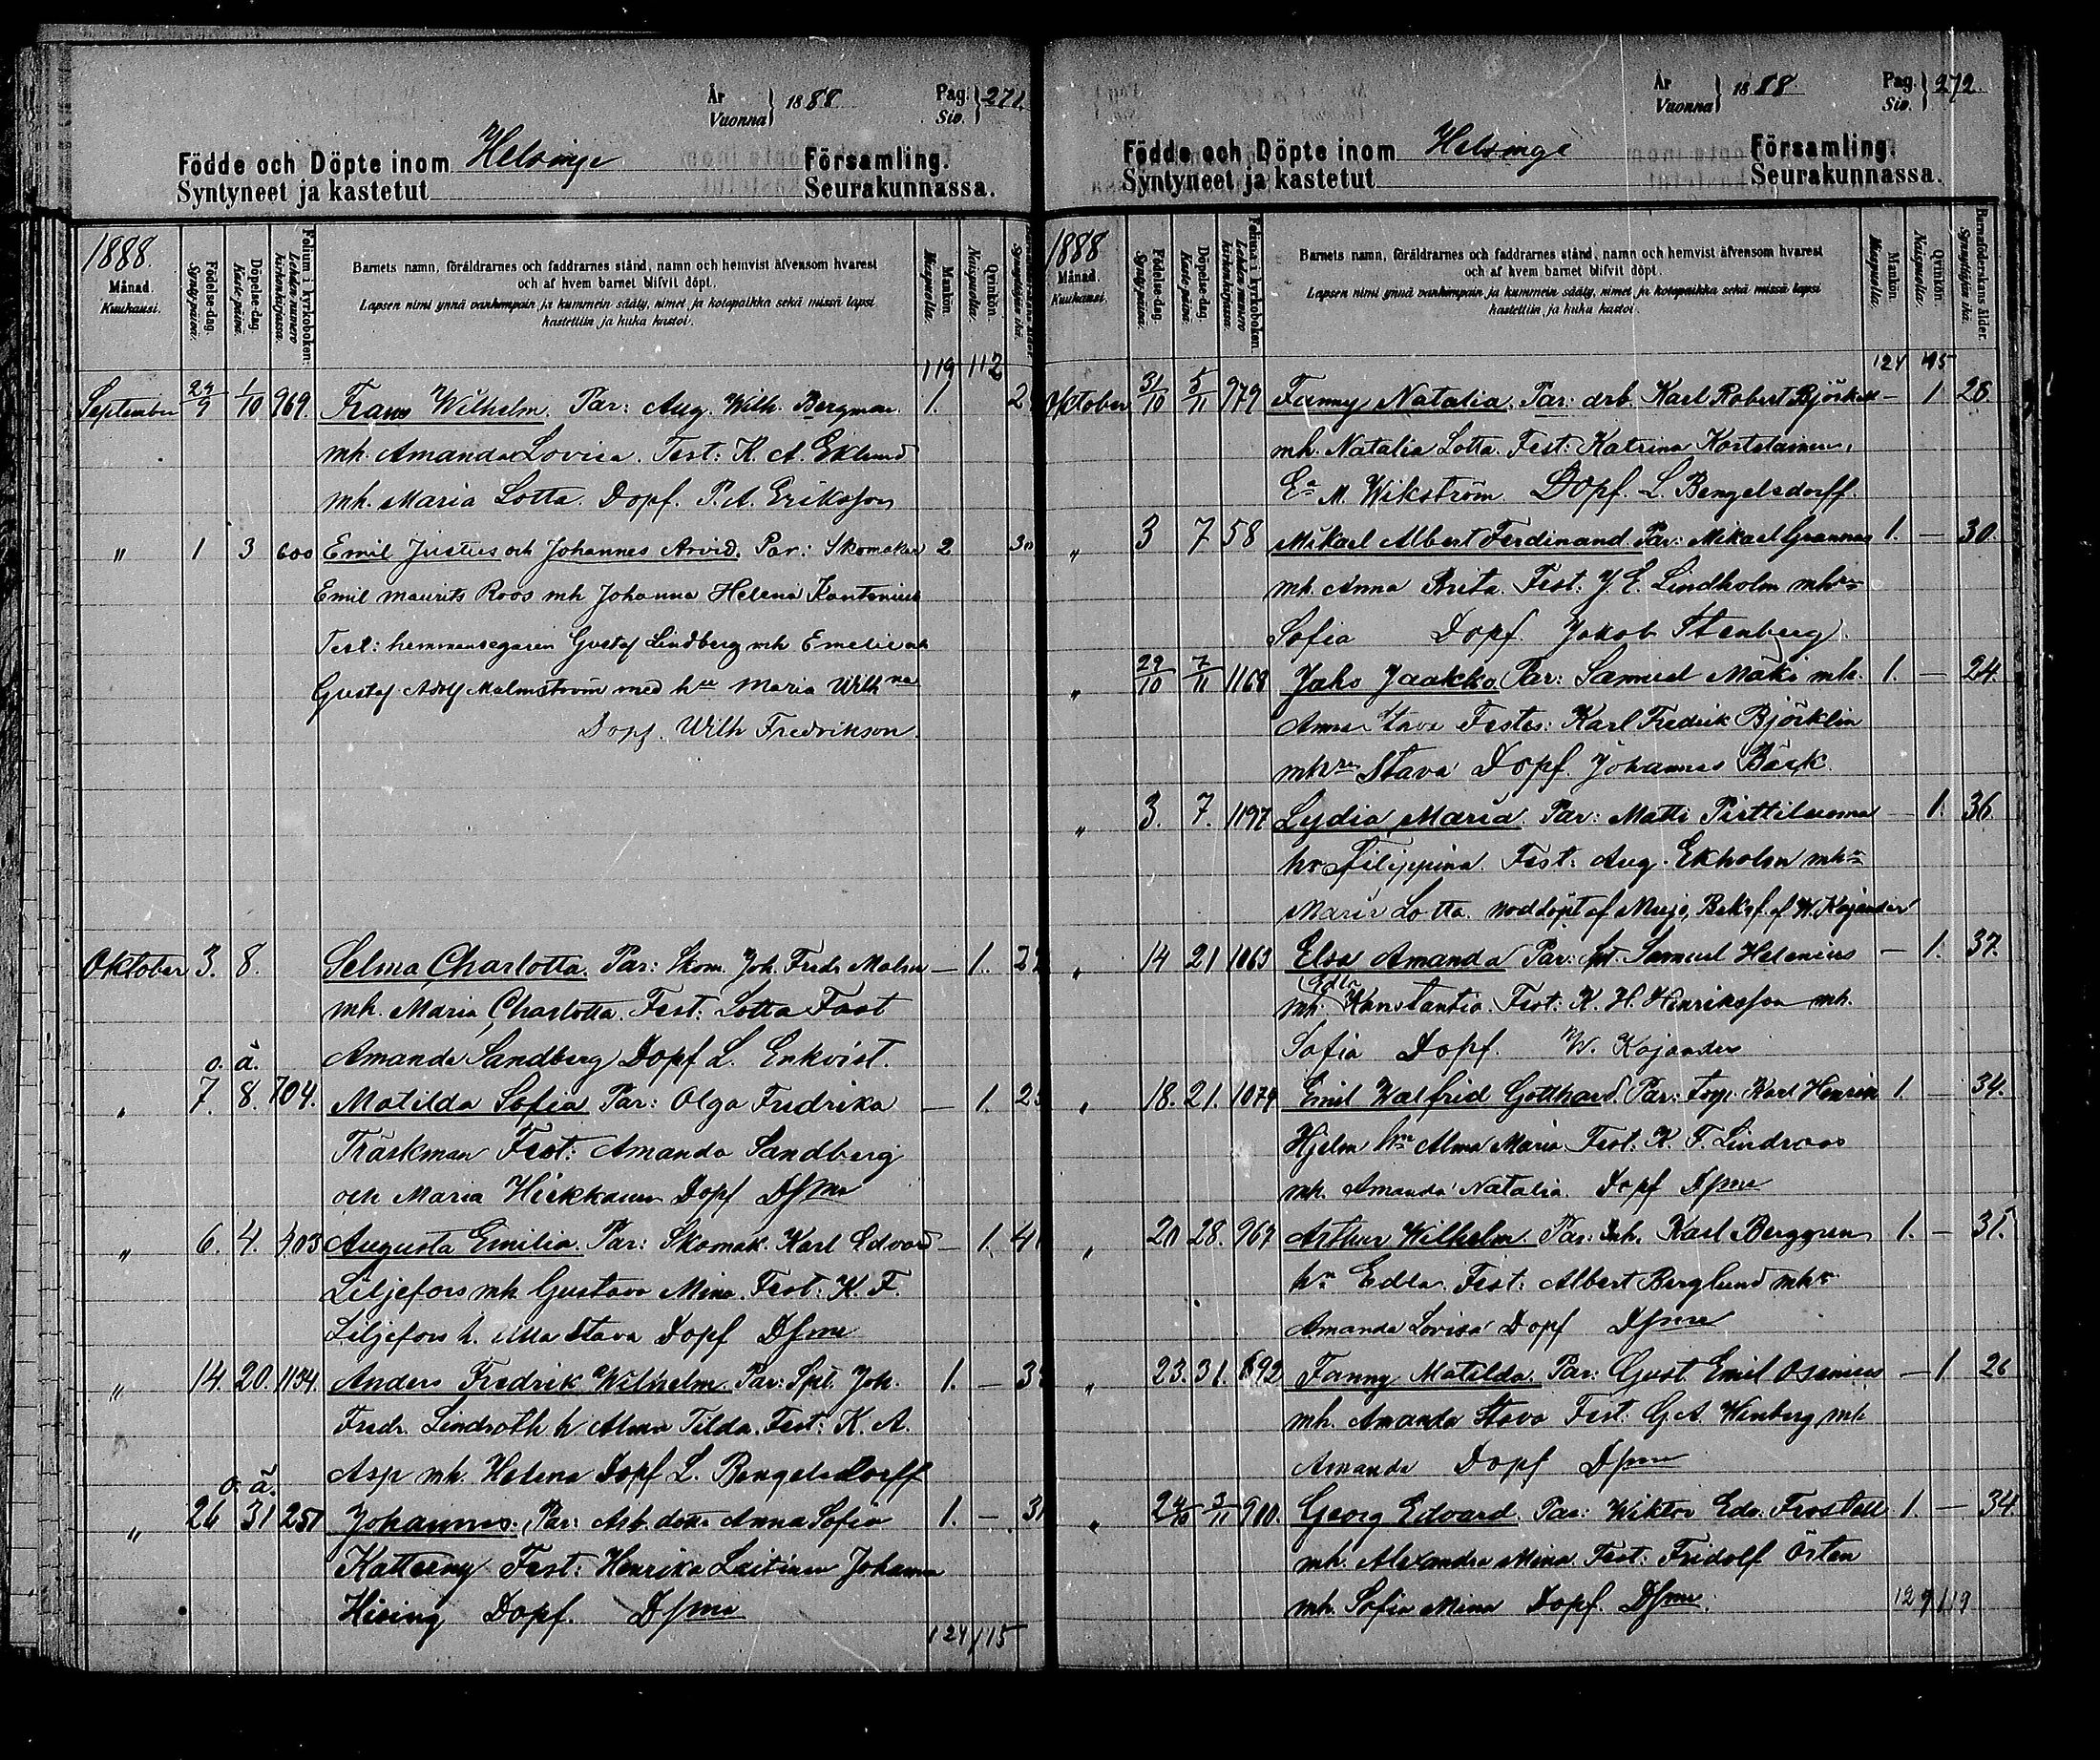 År Vuonna } 1888 Pag. Siv. } 271
Födde och Döpte inom Helsinge Församling.
Syntyneet ja kastetut Seurakunnassa.
1888. Månad. Kuukausi.
Födelse-dag. Syntypäivä.
Döpelse-dag. Kaste-päivä.
Folium i kyrkoboken: Lehden numero kirkonkirjassa.
Barnets namn, föräldrarnes och faddrarnes stånd, namn och hemvist äfvensom hvarest
och af hvem barnet blifvit döpt.
Lapsen nimi ynnä vanhimpain ja kummein sääty, nimet ja kotopaikka sekä missä lapsi
kastettiin ja kuka kastoi.
Mankön. Miespuolia.
Qvinkön. Naispuolia.
119 112
September 29/9 1/10 969. Frans Wilhelm. Par: Aug. Wilh. Bergman 1.
mh. Amanda Lovisa. Test: K. A. Eklund
mh. Maria Lotta. Dopf. P. A. Eriksson
" 1 3 600 Emil Justus och Johannes Arvid. Par: Skomakar 2 30
Emil Maurits Roos mh Johanna Helena Kantonius
Test: hemmansegaren Gustaf Lindberg mh Emelie och
Gustaf Adolf Malmström med hu Maria Wilhna
Dopf. Wilh Fredrikson.
Oktober 3. 8. Selma Charlotta. Par: Skom. Joh. Fredr Malm — 1.
mh. Maria Charlotta. Test: Lotta Fast
o. ä. Amanda Sandberg Dopf L. Enkvist.
" 7. 8. 704. Matilda Sofia Par: Olga Fredrika — 1.
Träskman Test: Amanda Sandberg
och Maria Dopf Dsme
" 6. 4. 403 Augusta Emilia Par: Skomak. Karl Edvard — 1.
Liljefors mh Gustava Mina. Test: K. F.
Liljefors h. Ulla Stava Dopf Dsme
" 14. 20. 1134. Anders Fredrik Wilhelm. Par: Spl. Joh. 1. —
Fredr. Lindroth h Alma Tilda. Test: K. A.
Asp mh. Helena Dopf L. Bengelsdorff
o. ä.
" 26 31 251 Johannes. Par: Arb. Anna Sofia 1. —
Test: Henrika Laitinen Johanna
Hising Dopf. Dsme
124/115
År Vuonna } 1888. Pag. Siv. } 272.
Födde och Döpte inom Helsinge Församling.
Syntyneet ja kastetut Seurakunnassa.
1888 Månad. Kuukausi.
Födelse-dag. Syntypäivä.
Döpelse-dag. Kaste-päivä.
Folium i kyrkoboken. Lehden numero kirkonkirjassa.
Barnets namn, föräldrarnes och faddrarnes stånd, namn och hemvist äfvensom hvarest
och af hvem barnet blifvit döpt.
Lapsen nimi ynnä vanhimpain ja kummein sääty, nimet ja kotopaikka sekä missä lapsi
kastettiin ja kuka kastoi.
Mankön. Miespuolia.
Qvinkön. Naispuolia.
Barnaföderskans ålder. Synnyttäjän ikä.
124 115
Oktober 31/10 5/11 979 Fanny Natalia. Par: arb. Karl Robert — 1 28.
mh. Natalia Lotta. Test: Katrina
M. Wikström Dopf. L. Bengelsdorff.
" 3 7 58 Mikael Albert Ferdinand. Par: Mikael Grannas 1. — 30
mh. Anna Brita. Test: J. E. Lindholm
Sofia Dopf. Jakob Stenberg.
" 29/10 7/11 1168 Jaho Jaakko. Par: Samuel Mäki mh. 1. — 24.
Anna Stava Testes: Karl Fredrik Björklin
Stava Dopf. Johannes Bäck.
" 3. 7. 1197 Lydia Maria. Par: Matti — 1. 36
Filippina. Test: Aug. Ekholm
Maria Lotta. nöddöpt af Bekrf. af W. Kajander
" 14 21 1063 Elsa Amanda Par: Samuel Helenius — 1. 37.
Edla
mh. Konstantia. Test: K. H. Henriksson mh.
Sofia Dopf. W. Kajander
" 18. 21. 1074 Emil Walfrid Gotthard. Par: Torp. Karl Henrik 1. — 34.
Hjelm Alma Maria Test: K. F. Lindroos
mh. Amanda Natalia. Dopf Dsme
" 20 28. 967 Arthur Wilhelm. Par: Inh. Karl Berggren 1. — 31.
Edla. Test: Albert Berglund
Amanda Lovisa Dopf Dsme
" 23. 31. 692 Fanny Matilda. Par: Gust. Emil Osenius — 1 26
mh. Amanda Stava Test: G. A. Wenberg, mh
Amanda Dopf Dsme
" 24/10 3/11 900. Georg Edvard. Par: Wiktor Edv. Frostell 1. — 34.
mh. Alexandra Mina. Test: Fridolf Östen
mh. Sofia Mina Dopf. Dsme.
129/119